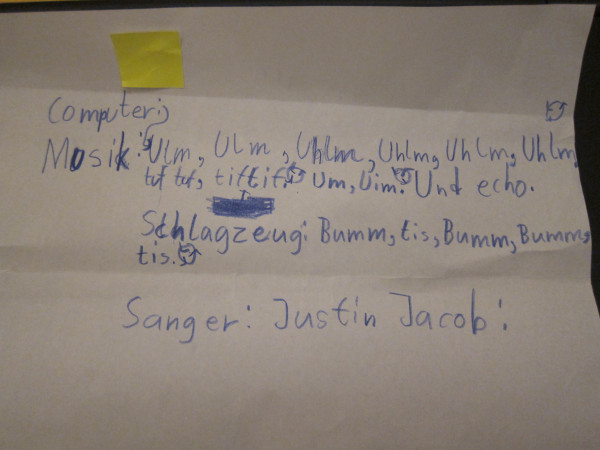 Computer:
Musik: Ulm, Ulm, Uhlm, Uhlm, Uhlm, Uhlm,
tuf tuf, tiftif. Um, Uim. Und echo.
Schlagzeug: Bumm, tis, Bumm, Bumm,
tis.
Sanger: Justin Jacob: